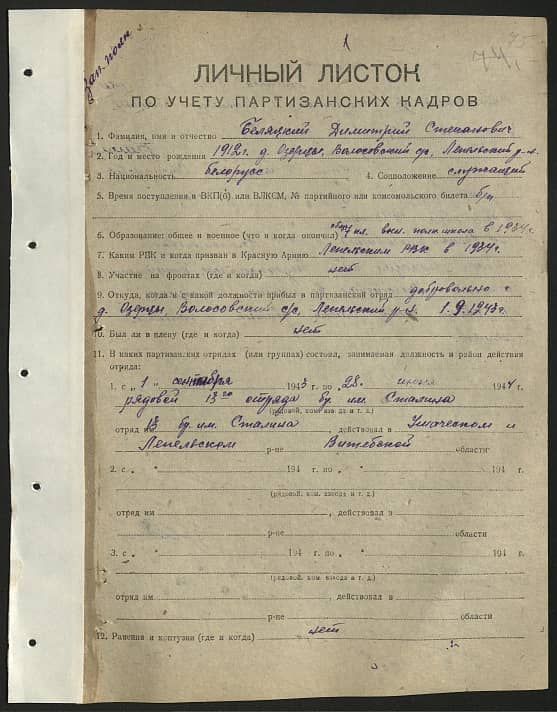 Зап. полк
1
75
74
ЛИЧНЫЙ ЛИСТОК
ПО УЧЕТУ ПАРТИЗАНСКИХ КАДРОВ
1. Фамилия, имя и отчество Беляцкий Димитрий Степанович
2. Год и место рождения 1912 г. д. Озерцы, Волосовский с/с, Лепельский р-н.
3. Национальность белорусс 4. Соцположение служащий
5. Время поступления в ВКП(б) или ВЛКСМ, № партийного или комсомольского билета б/п
6. Образование: общее и военное (что и когда окончил) 7 кл. полк. школа в 1934 г.
7. Каким РВК и когда призван в Красную Армию Лепельским РВК в 1934 г.
8. Участие на фронтах (где и когда) нет
9. Откуда, когда и с какой должности прибыл в партизанский отряд добровольно с
д. Озерцы, Волосовский с/с, Лепельский р-н. 1.9.1943 г.
10. Был ли в плену (где и когда) нет
11. В каких партизанских отрядах (или группах) состоял, занимаемая должность и район действия
отряда:
1. с „ 1 „ сентября 1943 г. по „ 28 „ июня 1944 г.
рядовой 13го отряда бр. им. Сталина
(рядовой, ком. взвода и т. д.)
отряд им 13 бр. им. Сталина, действовал в Ушачском и
Лепельском р-не Витебской области
2. с „ „ 194 г. по „ „ 194 г.
(рядовой, ком. взвода и т. д.)
отряд им , действовал в
р-не области
3. с „ „ 194 г. по „ „ 194 г.
(рядовой, ком. взвода и т. д.)
отряд им , действовал в
р-не области
12. Ранения и контузии (где и когда) нет